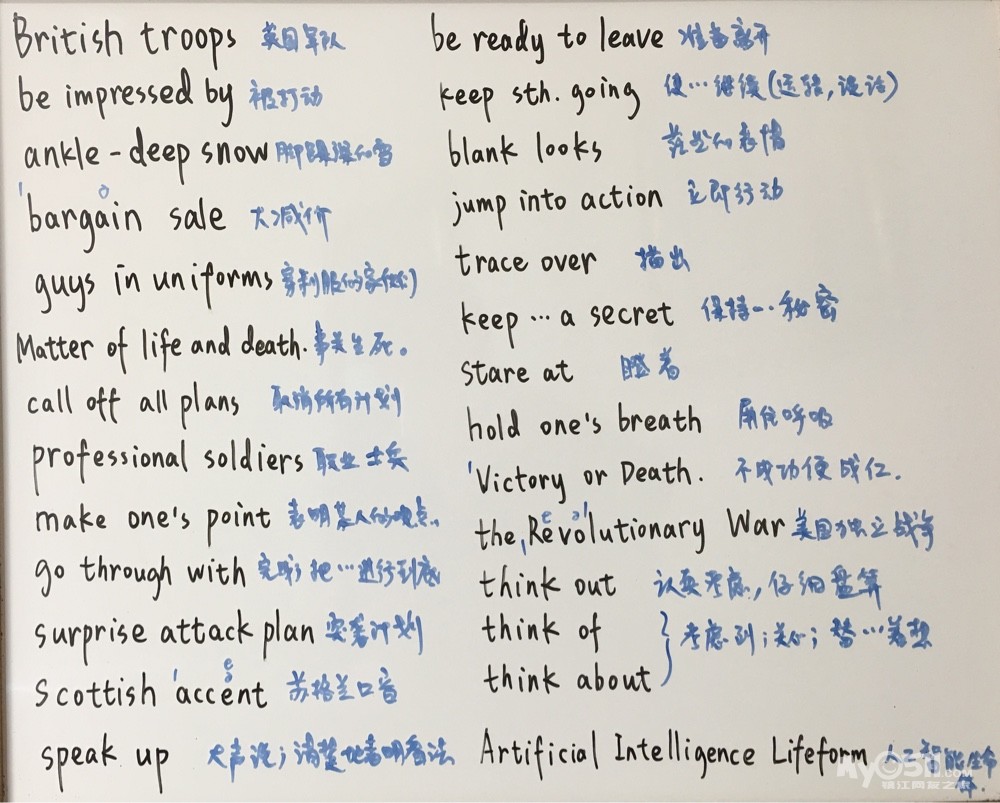 British troops 英国军队
be impressed by 被打动
ankle-deep snow 脚踝深的雪
bargain sale 大减价
guys in uniforms 穿制服的家伙(们)
Matter of life and death. 事关生死。
call off all plans 取消所有计划
professional soldiers 职业士兵
make one's point 表明某人的观点.
go through with 完成; 把…进行到底
surprise attack plan 突袭计划
Scottish accent 苏格兰口音
speak up 大声说; 清楚地表明看法
be ready to leave 准备离开
keep sth. going 使…继续(运转, 谈话)
blank looks 茫然的表情
jump into action 立即行动
trace over 描出
keep … a secret 保持…秘密
stare at 瞪着
hold one's breath 屏住呼吸
Victory or Death. 不成功便成仁.
the Revolutionary War 美国独立战争
think out 认真考虑, 仔细盘算
think of
think about } 考虑到; 关心; 替…着想
Artificial Intelligence Lifeform 人工智能生命体.